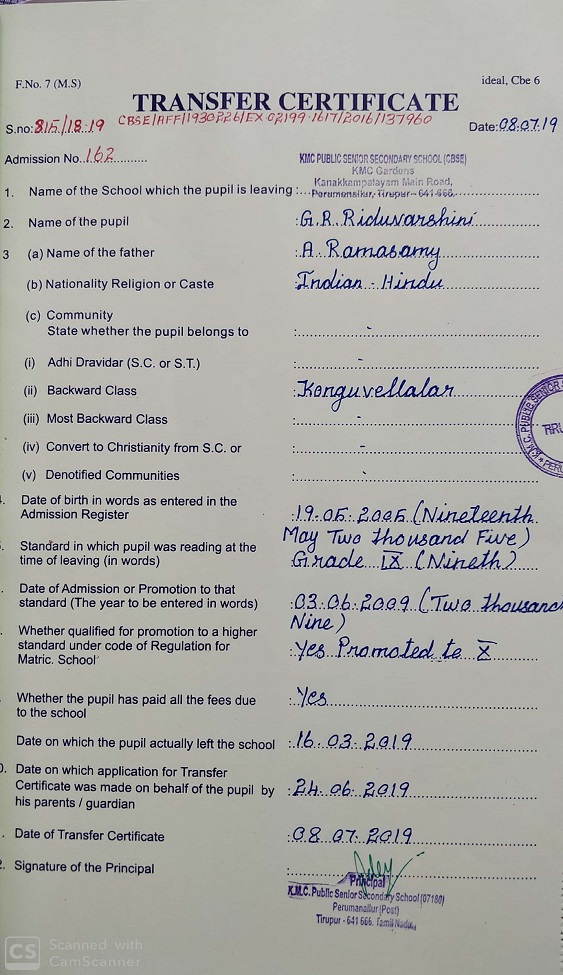 F.No. 7 (M.S)
ideal, Cbe 6
TRANSFER CERTIFICATE
CBSE/AFF/1930226/EX 02199-1617/2016/137960
S.no: 815/18-19
Date: 08.07.19
Admission No. 162
KMC PUBLIC SENIOR SECONDARY SCHOOL (CBSE)
KMC Gardens
Kanakkampalayam Main Road,
Perumanallur, Tirupur - 641 666.
1. Name of the School which the pupil is leaving :
2. Name of the pupil : G.R. Riduvarshini
3 (a) Name of the father : A. Ramasamy
(b) Nationality Religion or Caste Indian - Hindu
(c) Community
State whether the pupil belongs to : -
(i) Adhi Dravidar (S.C. or S.T.) : -
(ii) Backward Class : Konguvellalar
(iii) Most Backward Class : -
(iv) Convert to Christianity from S.C. or : -
(v) Denotified Communities : -
Date of birth in words as entered in the
Admission Register : 19.05.2005 (Nineteenth
May Two thousand Five)
Standard in which pupil was reading at the
time of leaving (in words) Grade IX (Nineth)
Date of Admission or Promotion to that
standard (The year to be entered in words) : 03.06.2009 (Two thousand
Nine)
Whether qualified for promotion to a higher
standard under code of Regulation for : Yes Promoted to X
Matric. School
Whether the pupil has paid all the fees due : Yes
to the school
Date on which the pupil actually left the school : 16.03.2019
0. Date on which application for Transfer
Certificate was made on behalf of the pupil by : 24.06.2019
his parents / guardian
. Date of Transfer Certificate : 08.07.2019
2. Signature of the Principal :
Principal
K.M.C. Public Senior Secondary School (07180)
Perumanallur (Post)
Tirupur - 641 666. Tamil Nadu.
K.M.C. PUBLIC SENIOR
CS Scanned with
CamScanner